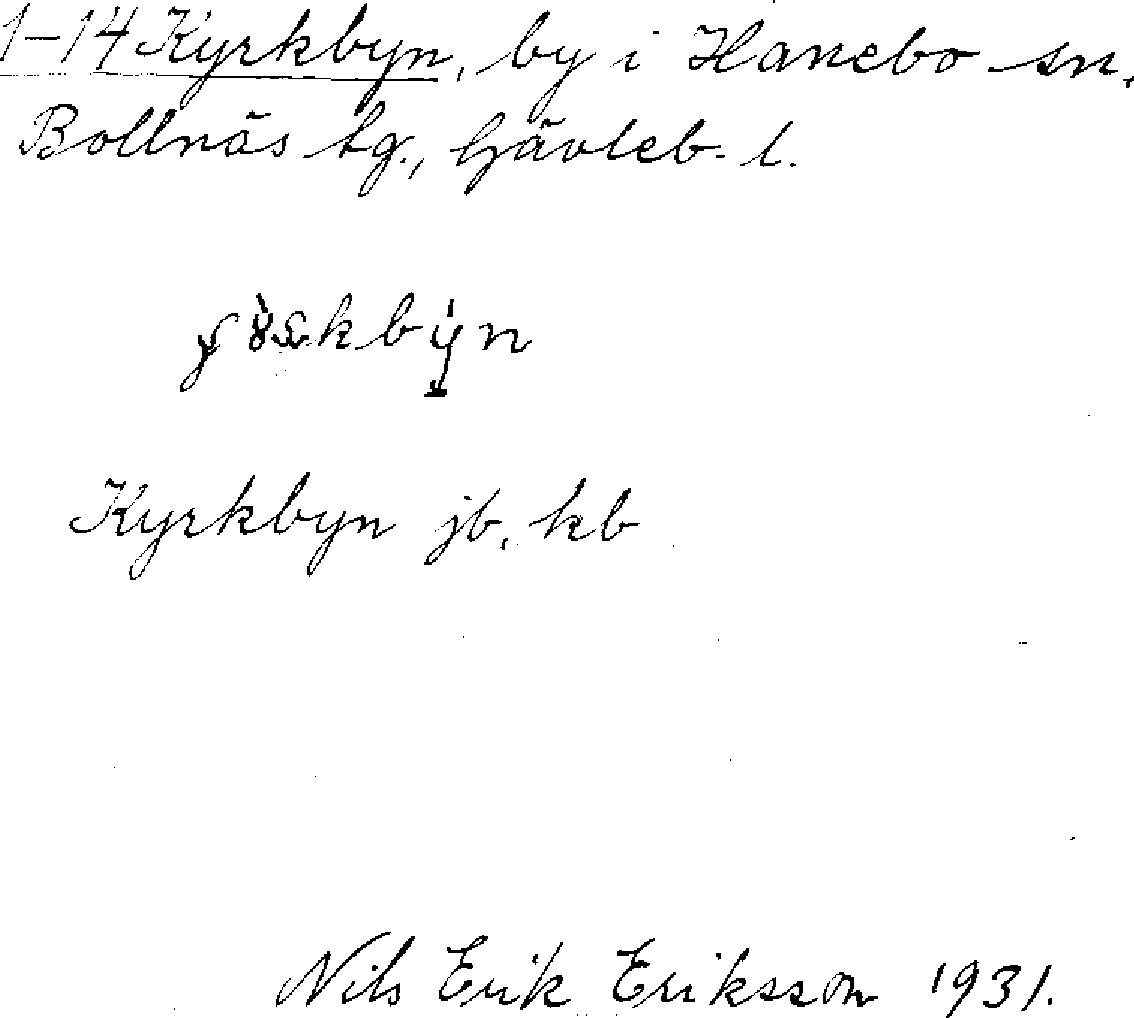 1-14 Kyrkbyn, by i Hanebo sn,
Bollnäs tg., Gävleb. l.
Kyrkbyn jb, kb
Nils Erik Eriksson 1931.